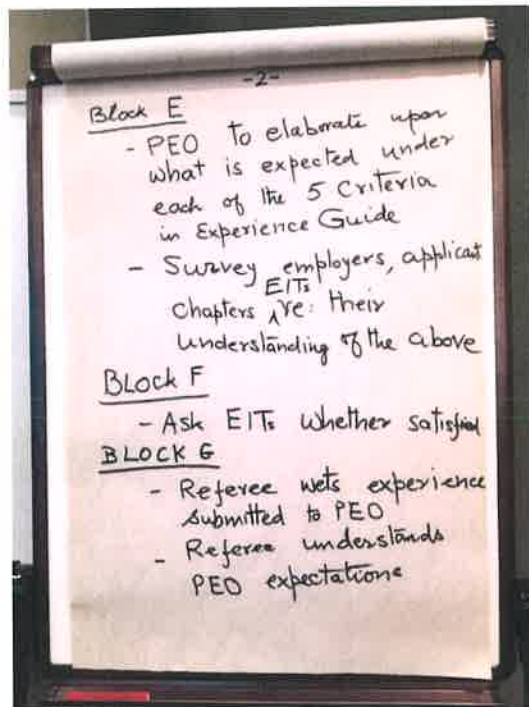 -2-
Block E
- PEO to elaborate upon
what is expected under
each of the 5 Criteria
in Experience Guide
- Survey employers, applicant
EITs
chapters ^ re: their
understanding of the above
BLOCK F
- Ask EITs whether satisfied
BLOCK G
- Referee wets experience
submitted to PEO
- Referee understands
PEO expectations